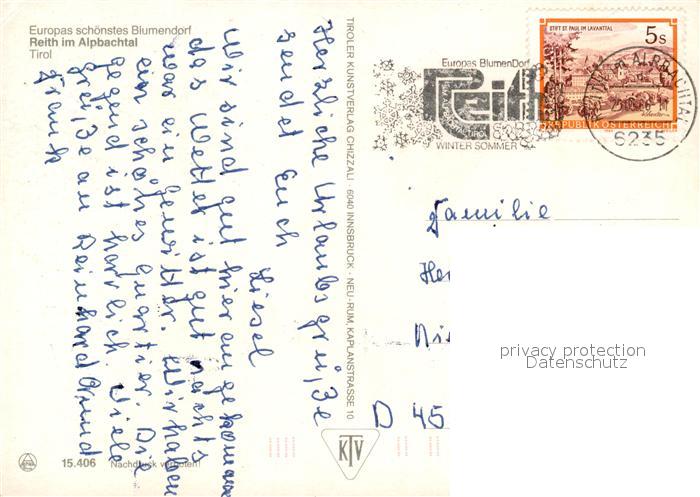 Europas schönstes Blumendorf
Reith im Alpbachtal
Tirol
Herzliche Urlaubsgrüße
sendet Euch
Liesel
Wir sind gut hier angekommen
das Wetter ist gut nachts
war ein Gewitter. Wir haben
ein schönes Quartier. Die
Gegend ist herrlich. Viele
Grüße an Reinhard und
Frank
TIROLER KUNSTVERLAG CHIZZALI · 6040 INNSBRUCK - NEU-RUM, KAPLANSTRASSE 10
Europas BlumenDorf
Reith
TIROL
WINTER SOMMER
STIFT ST. PAUL IM LAVANTTAL
5s
REPUBLIK ÖSTERREICH
REITH IM ALPBACHTAL
6235
Familie
D 45
privacy protection
Datenschutz
KTV
15.406 Nachdruck verboten!